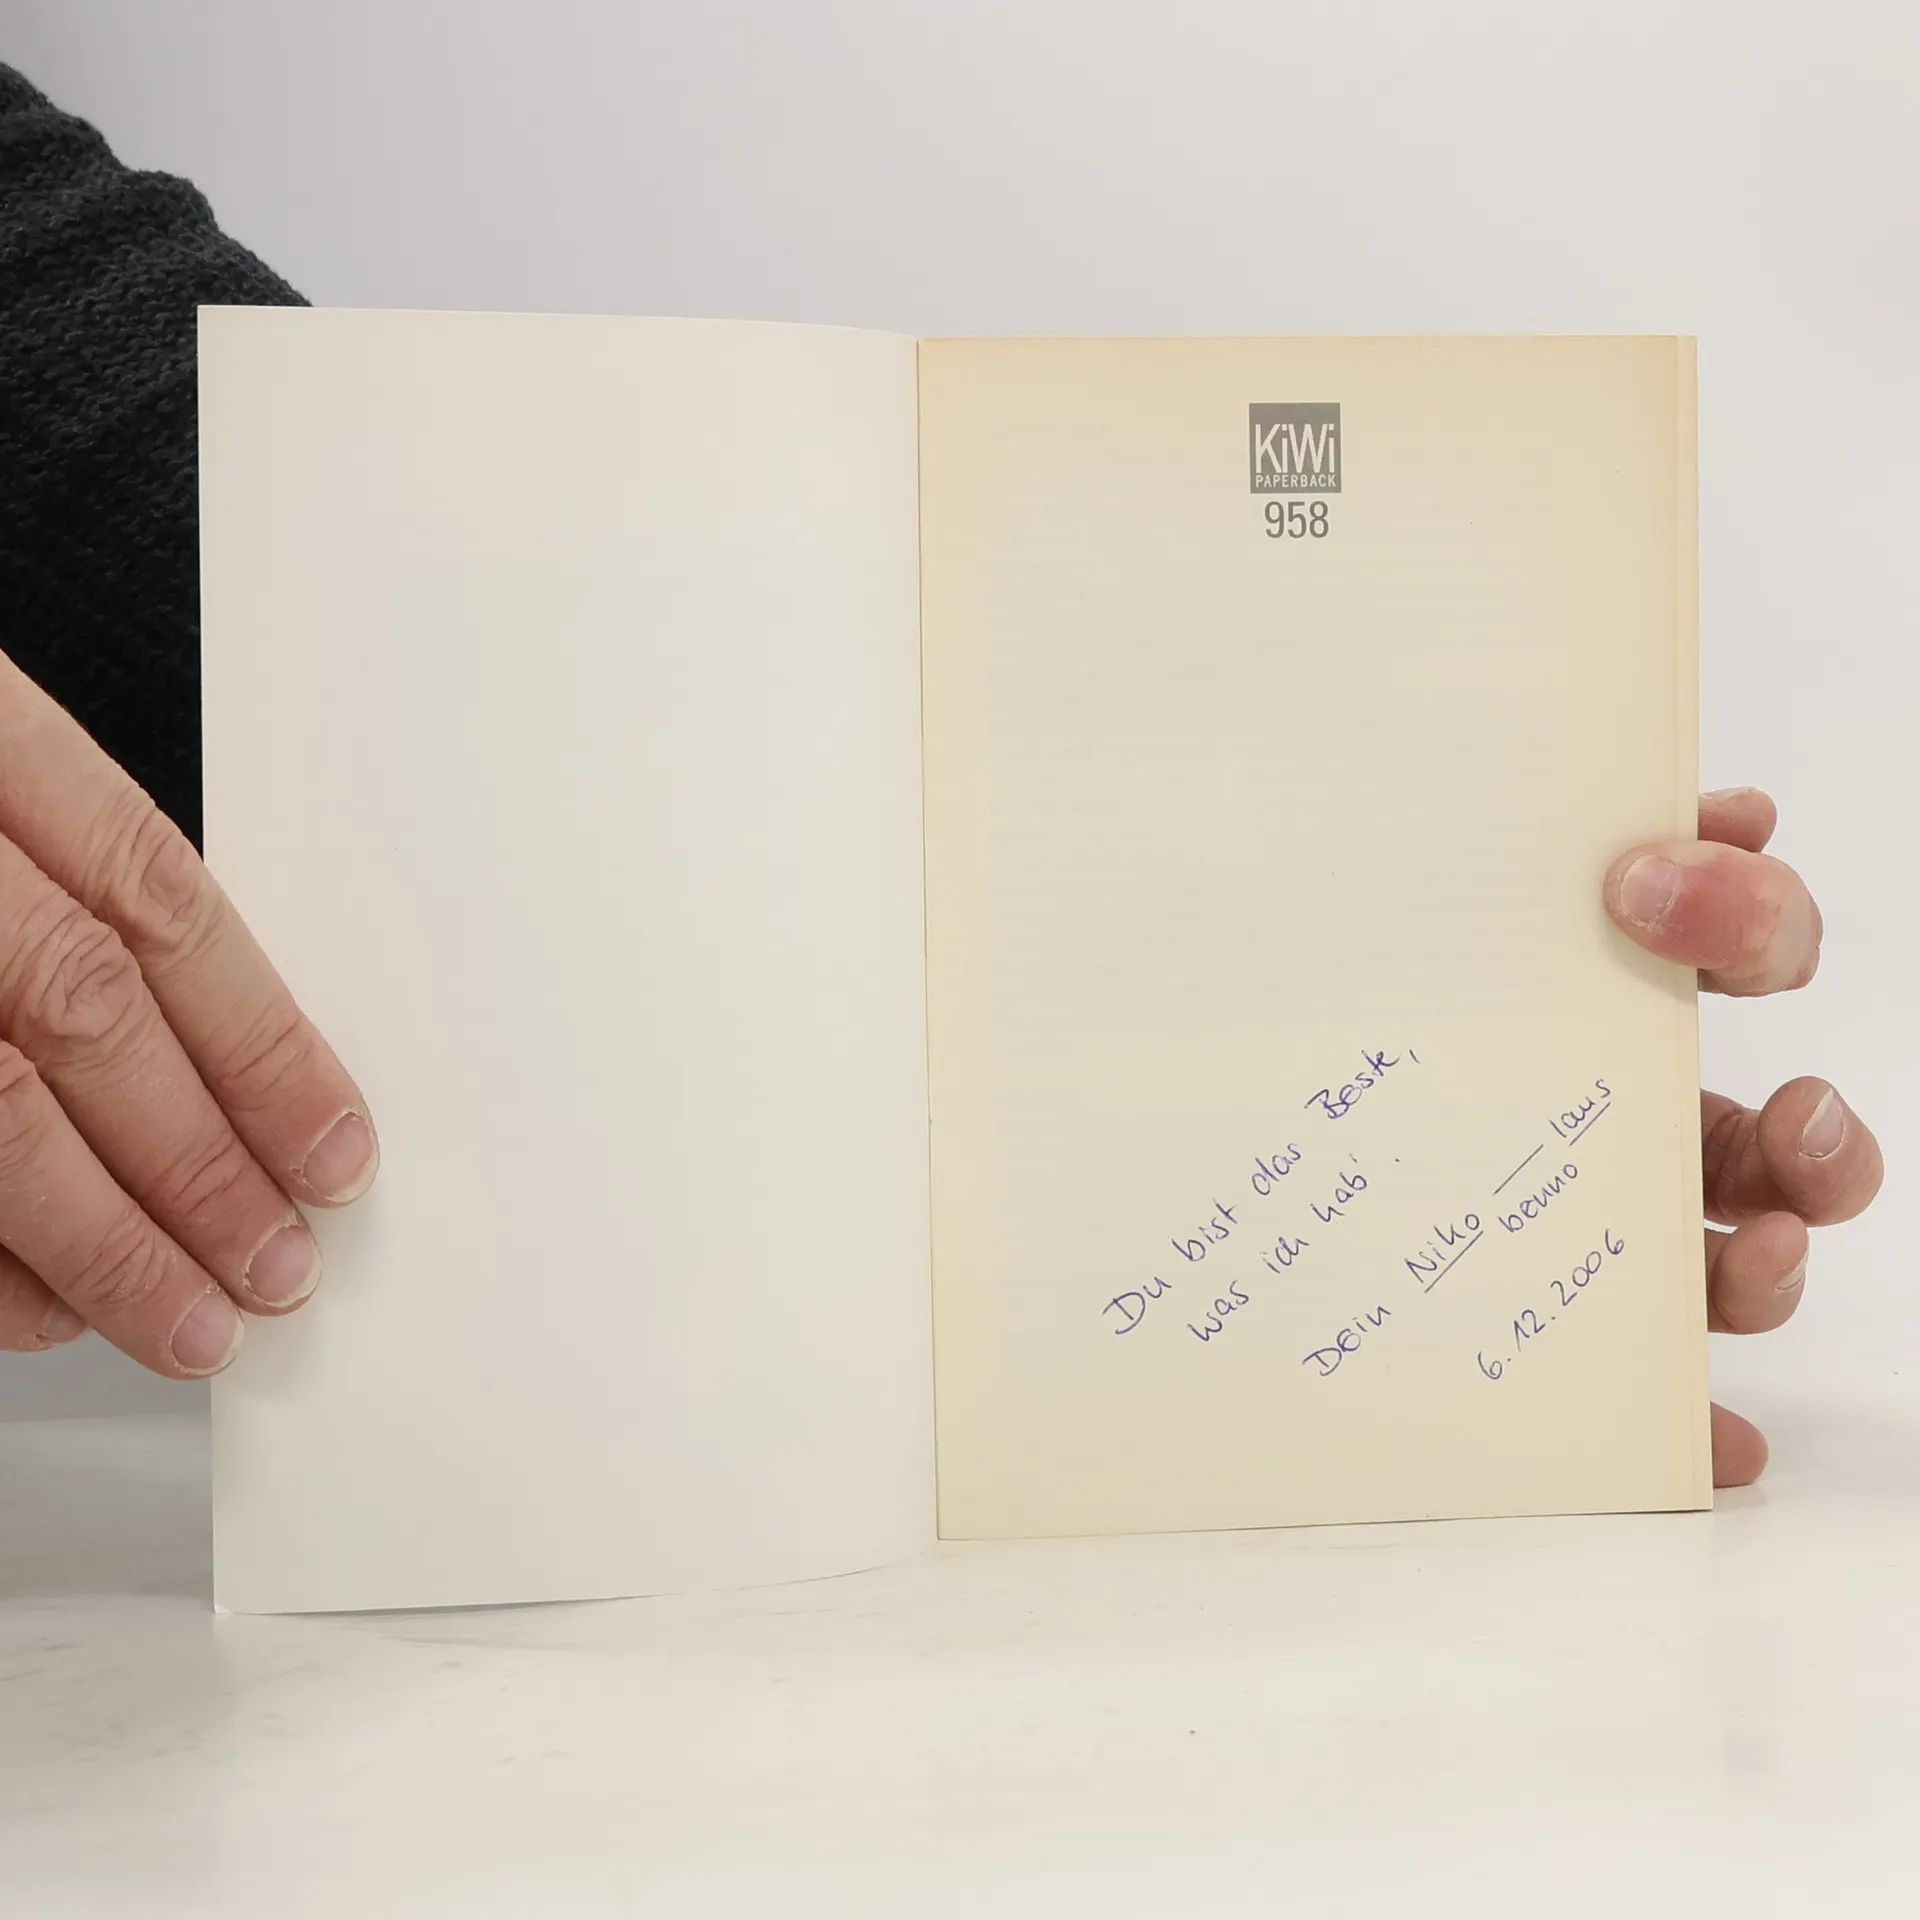 KiWi
PAPERBACK
958
Du bist das Beste,
was ich hab'.
Dein Niko ___ laus
benno
6.12.2006